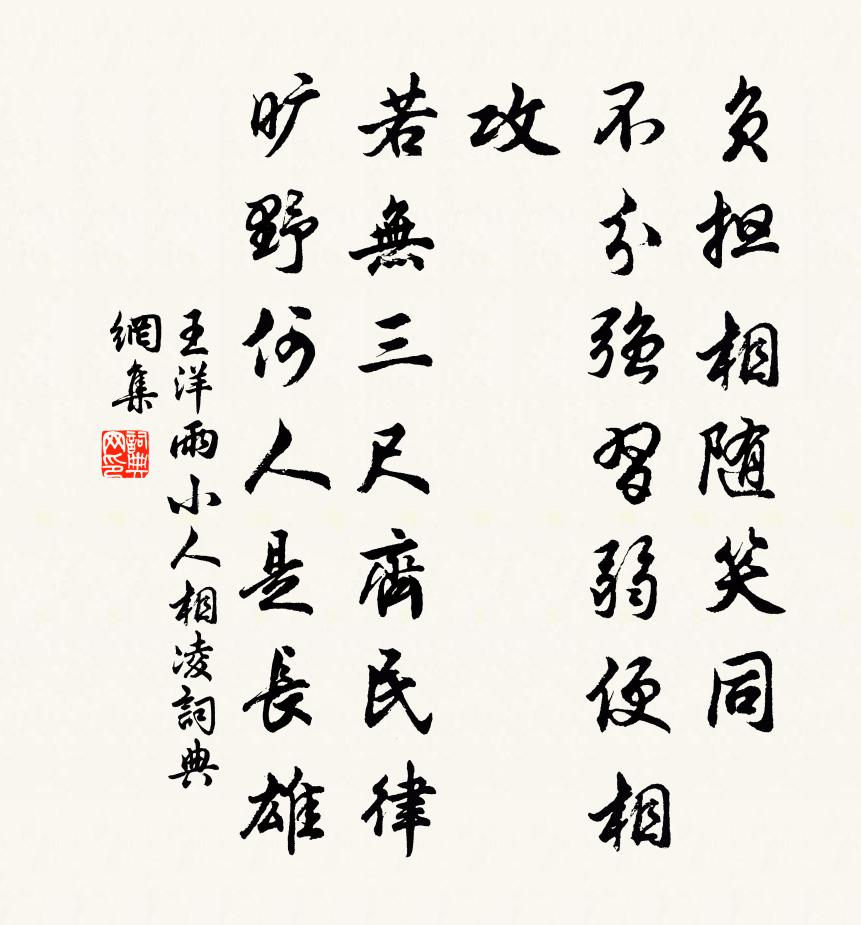 负担相随笑同
不分強習弱便相
攻
若無三尺齊民律
旷野何人是長雄
王洋兩小人相凌詞典
網集
詞典
网印